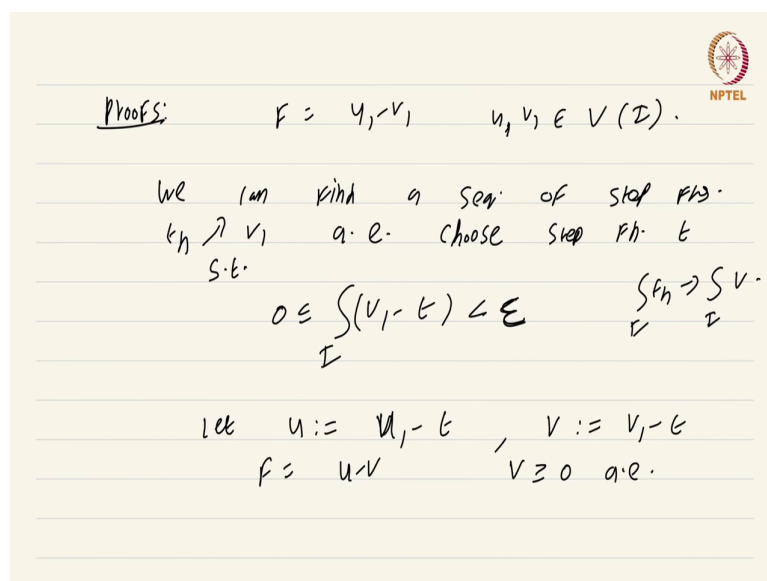 NPTEL
Proofs: F = u₁-v₁ u₁, v₁ ∈ V(I).
We can find a seq. of step fns.
tₙ ↗ v₁ a.e. choose step fn. t
s.t.
0 ≤ ∫_I (v₁ - t) < ε ∫_I tₙ → ∫_I v.
let u := u₁ - t , v := v₁ - t
F = u-v v ≥ 0 a.e.